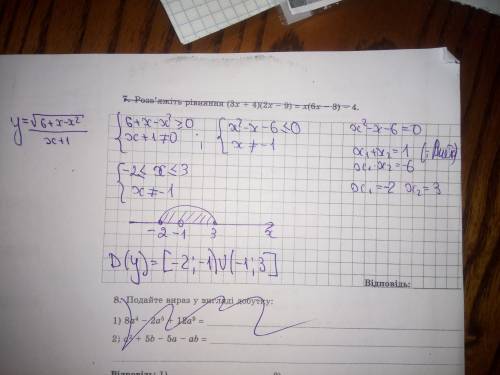 7. Розв'яжіть рівняння (3x + 4)(2x − 9) = x(6x − 8) − 4.
y = √(6+x−x²) / (x+1)
{ 6+x−x² ≥ 0 ; { x²−x−6 ≤ 0
x+1 ≠ 0 x ≠ −1
x²−x−6=0
x₁+x₂=1
x₁·x₂=−6
x₁=−2 x₂=3
{ −2 ≤ x ≤ 3
x ≠ −1
−2 −1 3 x
D(y)=[−2;−1)∪(−1;3]
Відповідь:
8. Подайте вираз у вигляді добутку:
1) 8a⁴ − 2a⁵ + 12a⁹ =
2) a² + 5b − 5a − ab =
Відповідь: 1) 2)